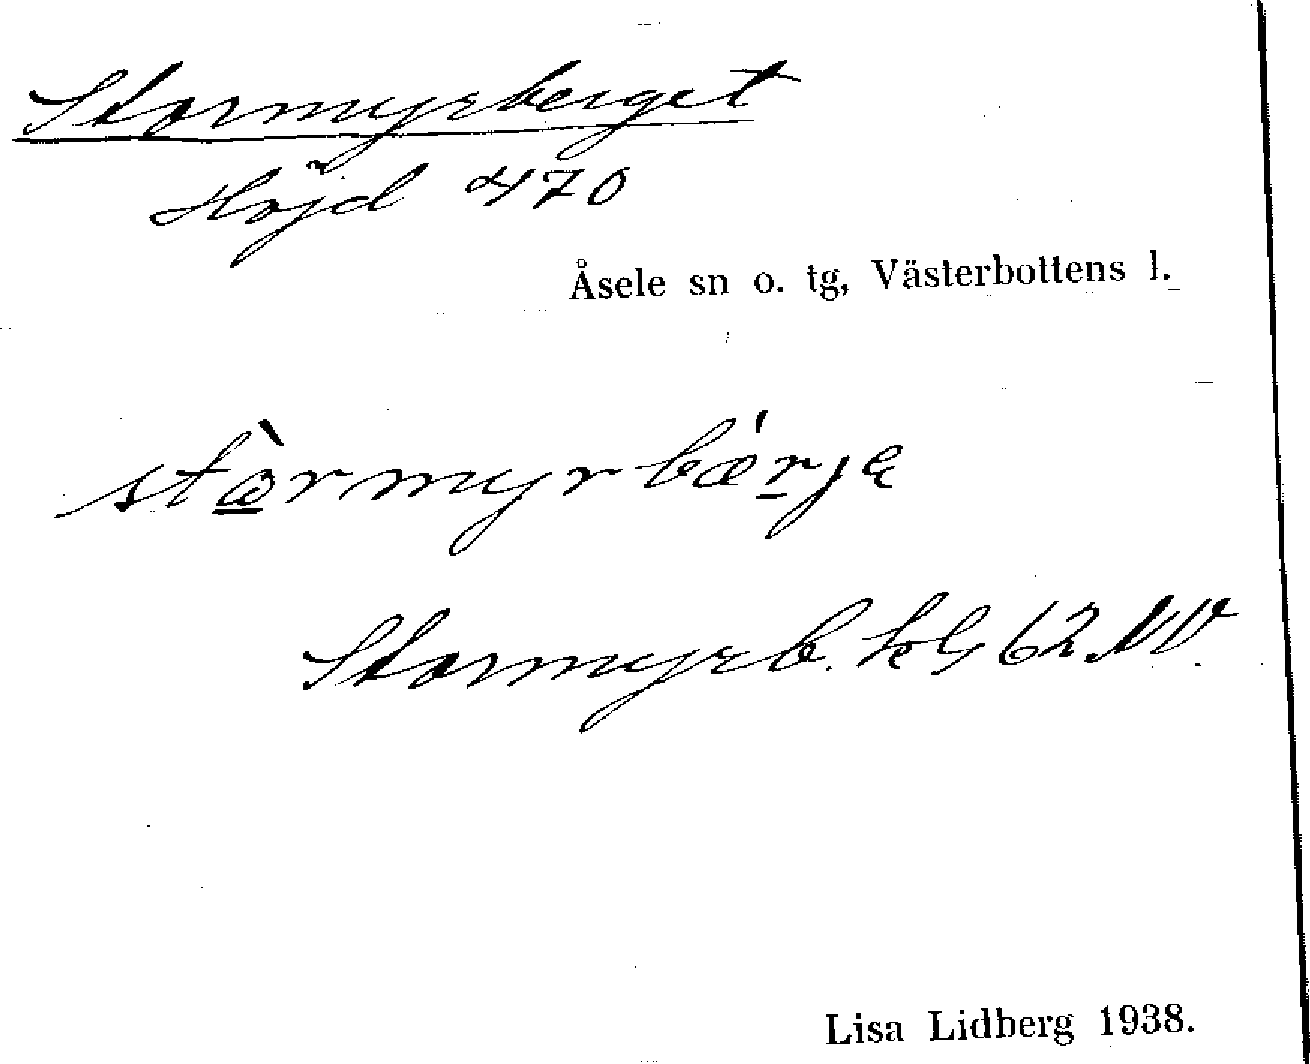 Stormyrberget
Höjd 470
Åsele sn o. tg, Västerbottens l.
stòrmyrbæŕ̲jɐ
Stormyrb. kbl 62 NV.
Lisa Lidberg 1938.